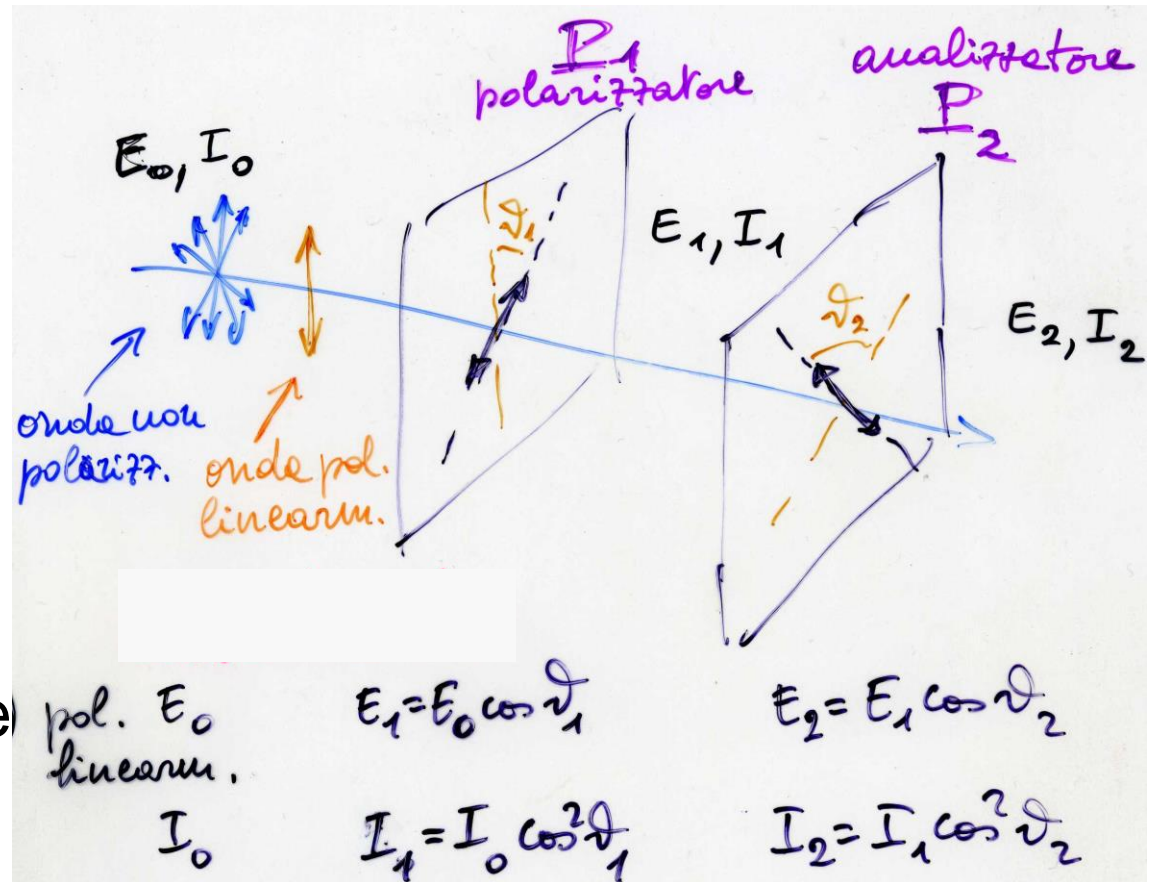 P1
polarizzatore
analizzatore
P2
E0, I0
ϑ1
E1, I1
ϑ2
E2, I2
onda non
polarizz.
onda pol.
linearm.
e)
pol. E0
linearm.
E1 = E0 cos ϑ1
E2 = E1 cos ϑ2
I0
I1 = I0 cos²ϑ1
I2 = I1 cos²ϑ2